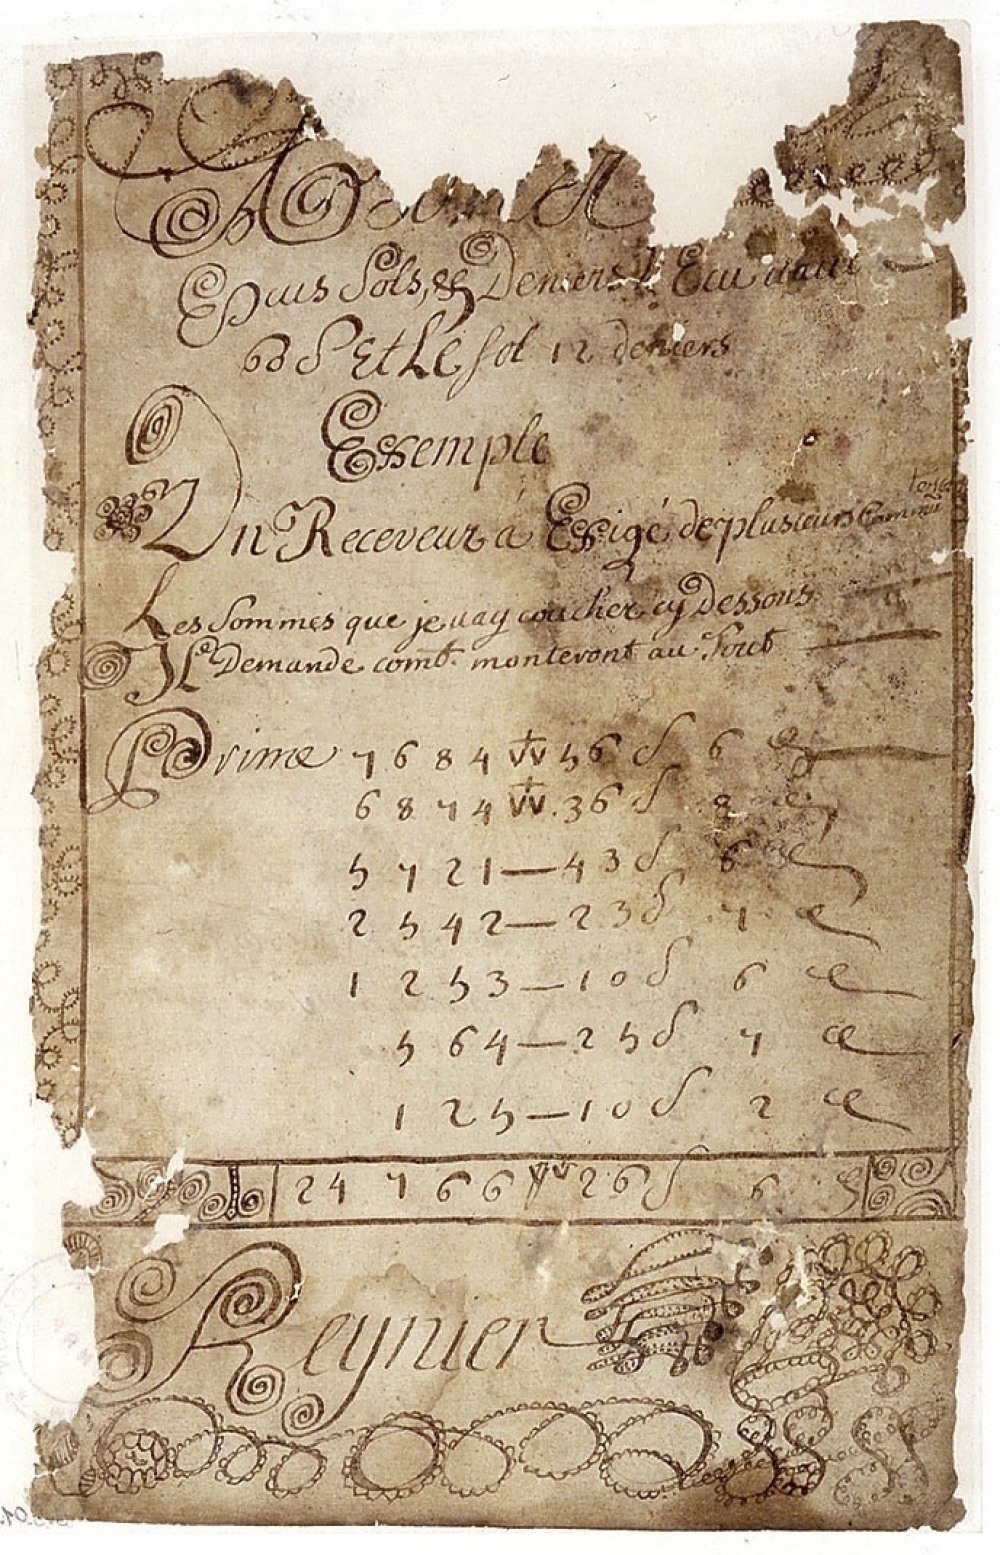 Ecus Sols, & Deniers L'Ecu vaut
60 S Et Le sol 12 deniers
Exemple
Un Receveur á Exigé de plusieurs Commu
Les Sommes que je vay coucher cy Dessous
Il Demande comb. monteront au Tout
Prime 7684 W 56 S 6 d
6874 W. 36 S 8 d
5721—43 S 6 d
2542—23 S 7 d
1253—10 S 6 d
564—25 S 7 d
125—10 S 2 d
24766 W 26 S 6 d
Reynier